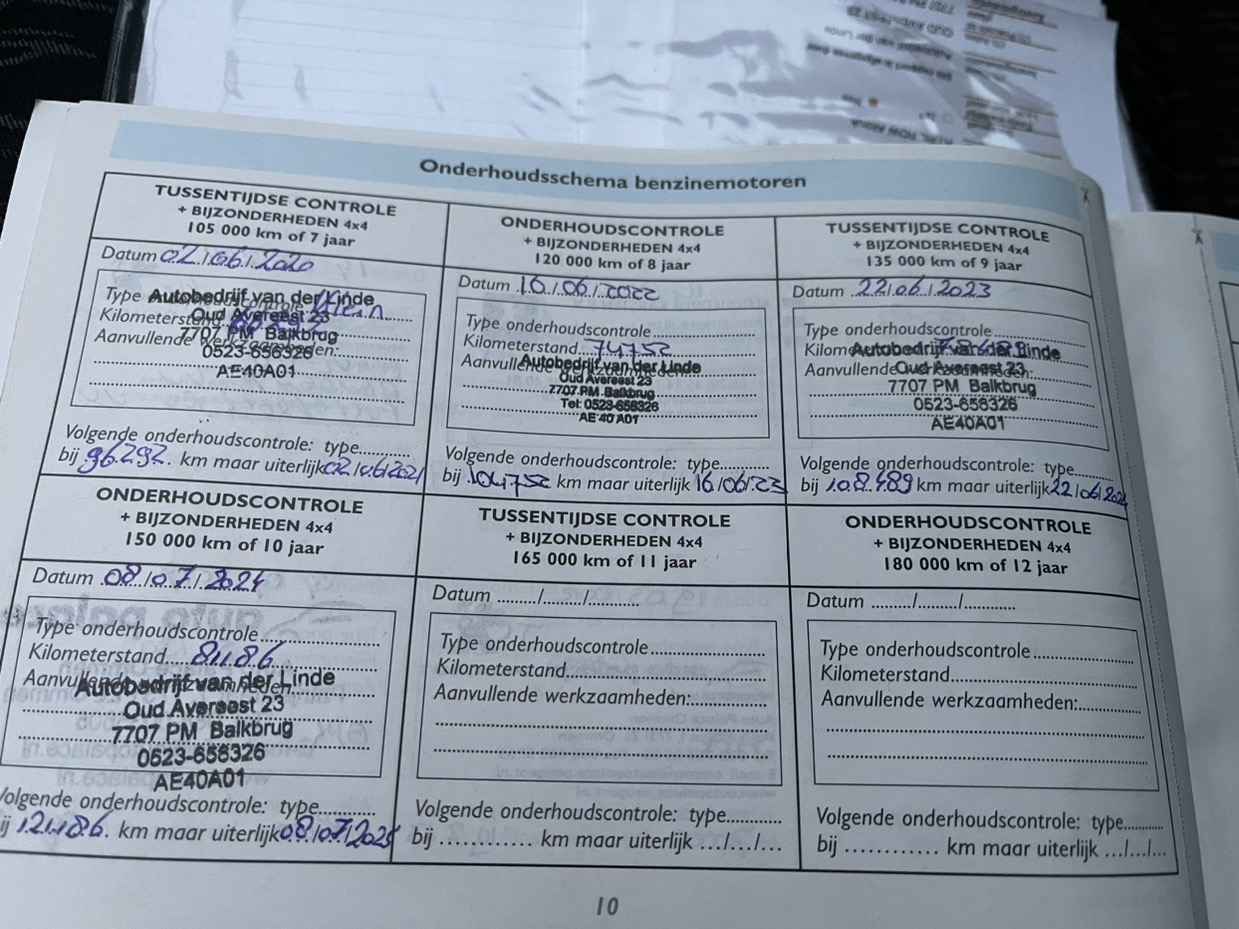 Onderhoudsschema benzinemotoren
TUSSENTIJDSE CONTROLE
+ BIJZONDERHEDEN 4x4
105 000 km of 7 jaar
Datum 02/06/2020
Type onderhoudscontrole Klein
Kilometerstand
Aanvullende werkzaamheden:
Autobedrijf van der Linde
Oud Avereest 23
7707 PM Balkbrug
0523-656326
AE40A01
Volgende onderhoudscontrole: type............
bij 96.292. km maar uiterlijk 02/06/2021
ONDERHOUDSCONTROLE
+ BIJZONDERHEDEN 4x4
120 000 km of 8 jaar
Datum 16/06/2022
Type onderhoudscontrole
Kilometerstand 74752
Aanvullende werkzaamheden:
Autobedrijf van der Linde
Oud Avereest 23
7707 PM Balkbrug
Tel: 0523-656326
AE 40 A01
Volgende onderhoudscontrole: type............
bij 104752 km maar uiterlijk 16/06/23
TUSSENTIJDSE CONTROLE
+ BIJZONDERHEDEN 4x4
135 000 km of 9 jaar
Datum 22/06/2023
Type onderhoudscontrole
Kilometerstand 78489
Aanvullende werkzaamheden:
Autobedrijf van der Linde
Oud Avereest 23
7707 PM Balkbrug
0523-656326
AE40A01
Volgende onderhoudscontrole: type............
bij 108.489 km maar uiterlijk 22/06/202
ONDERHOUDSCONTROLE
+ BIJZONDERHEDEN 4x4
150 000 km of 10 jaar
Datum 08/07/2024
Type onderhoudscontrole
Kilometerstand 81186
Aanvullende werkzaamheden:
Autobedrijf van der Linde
Oud Avereest 23
7707 PM Balkbrug
0523-656326
AE40A01
Volgende onderhoudscontrole: type............
ij 121.186. km maar uiterlijk 08/07/2025
TUSSENTIJDSE CONTROLE
+ BIJZONDERHEDEN 4x4
165 000 km of 11 jaar
Datum ........./........./............
Type onderhoudscontrole
Kilometerstand
Aanvullende werkzaamheden:
Volgende onderhoudscontrole: type............
bij ............ km maar uiterlijk .../.../...
ONDERHOUDSCONTROLE
+ BIJZONDERHEDEN 4x4
180 000 km of 12 jaar
Datum ........./........./............
Type onderhoudscontrole
Kilometerstand
Aanvullende werkzaamheden:
Volgende onderhoudscontrole: type............
bij ............ km maar uiterlijk .../.../...
10